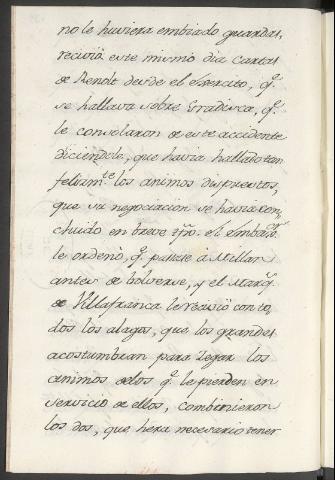 no le huviera embiado guardas,
recivió este mismo dia cartas
de Renolt desde el Exercito, q.e
se hallava sobre Gradisca, q.e
le consolaron de este accidente
diciendole, que havia hallado tan
felizm.te los animos dispuestos,
que su negociacion se havia con-
cluido en breve tpo. el Embax.or
le ordenò, q.e pasase à Millan
antes de bolverse, y el Marq.s
de Villafranca le recivió con to-
dos los alagos, que los grandes
acostumbran para legar los
animos delos q.e le pierden en
servicio de ellos, combinieron
los dos, que hera necesario tener